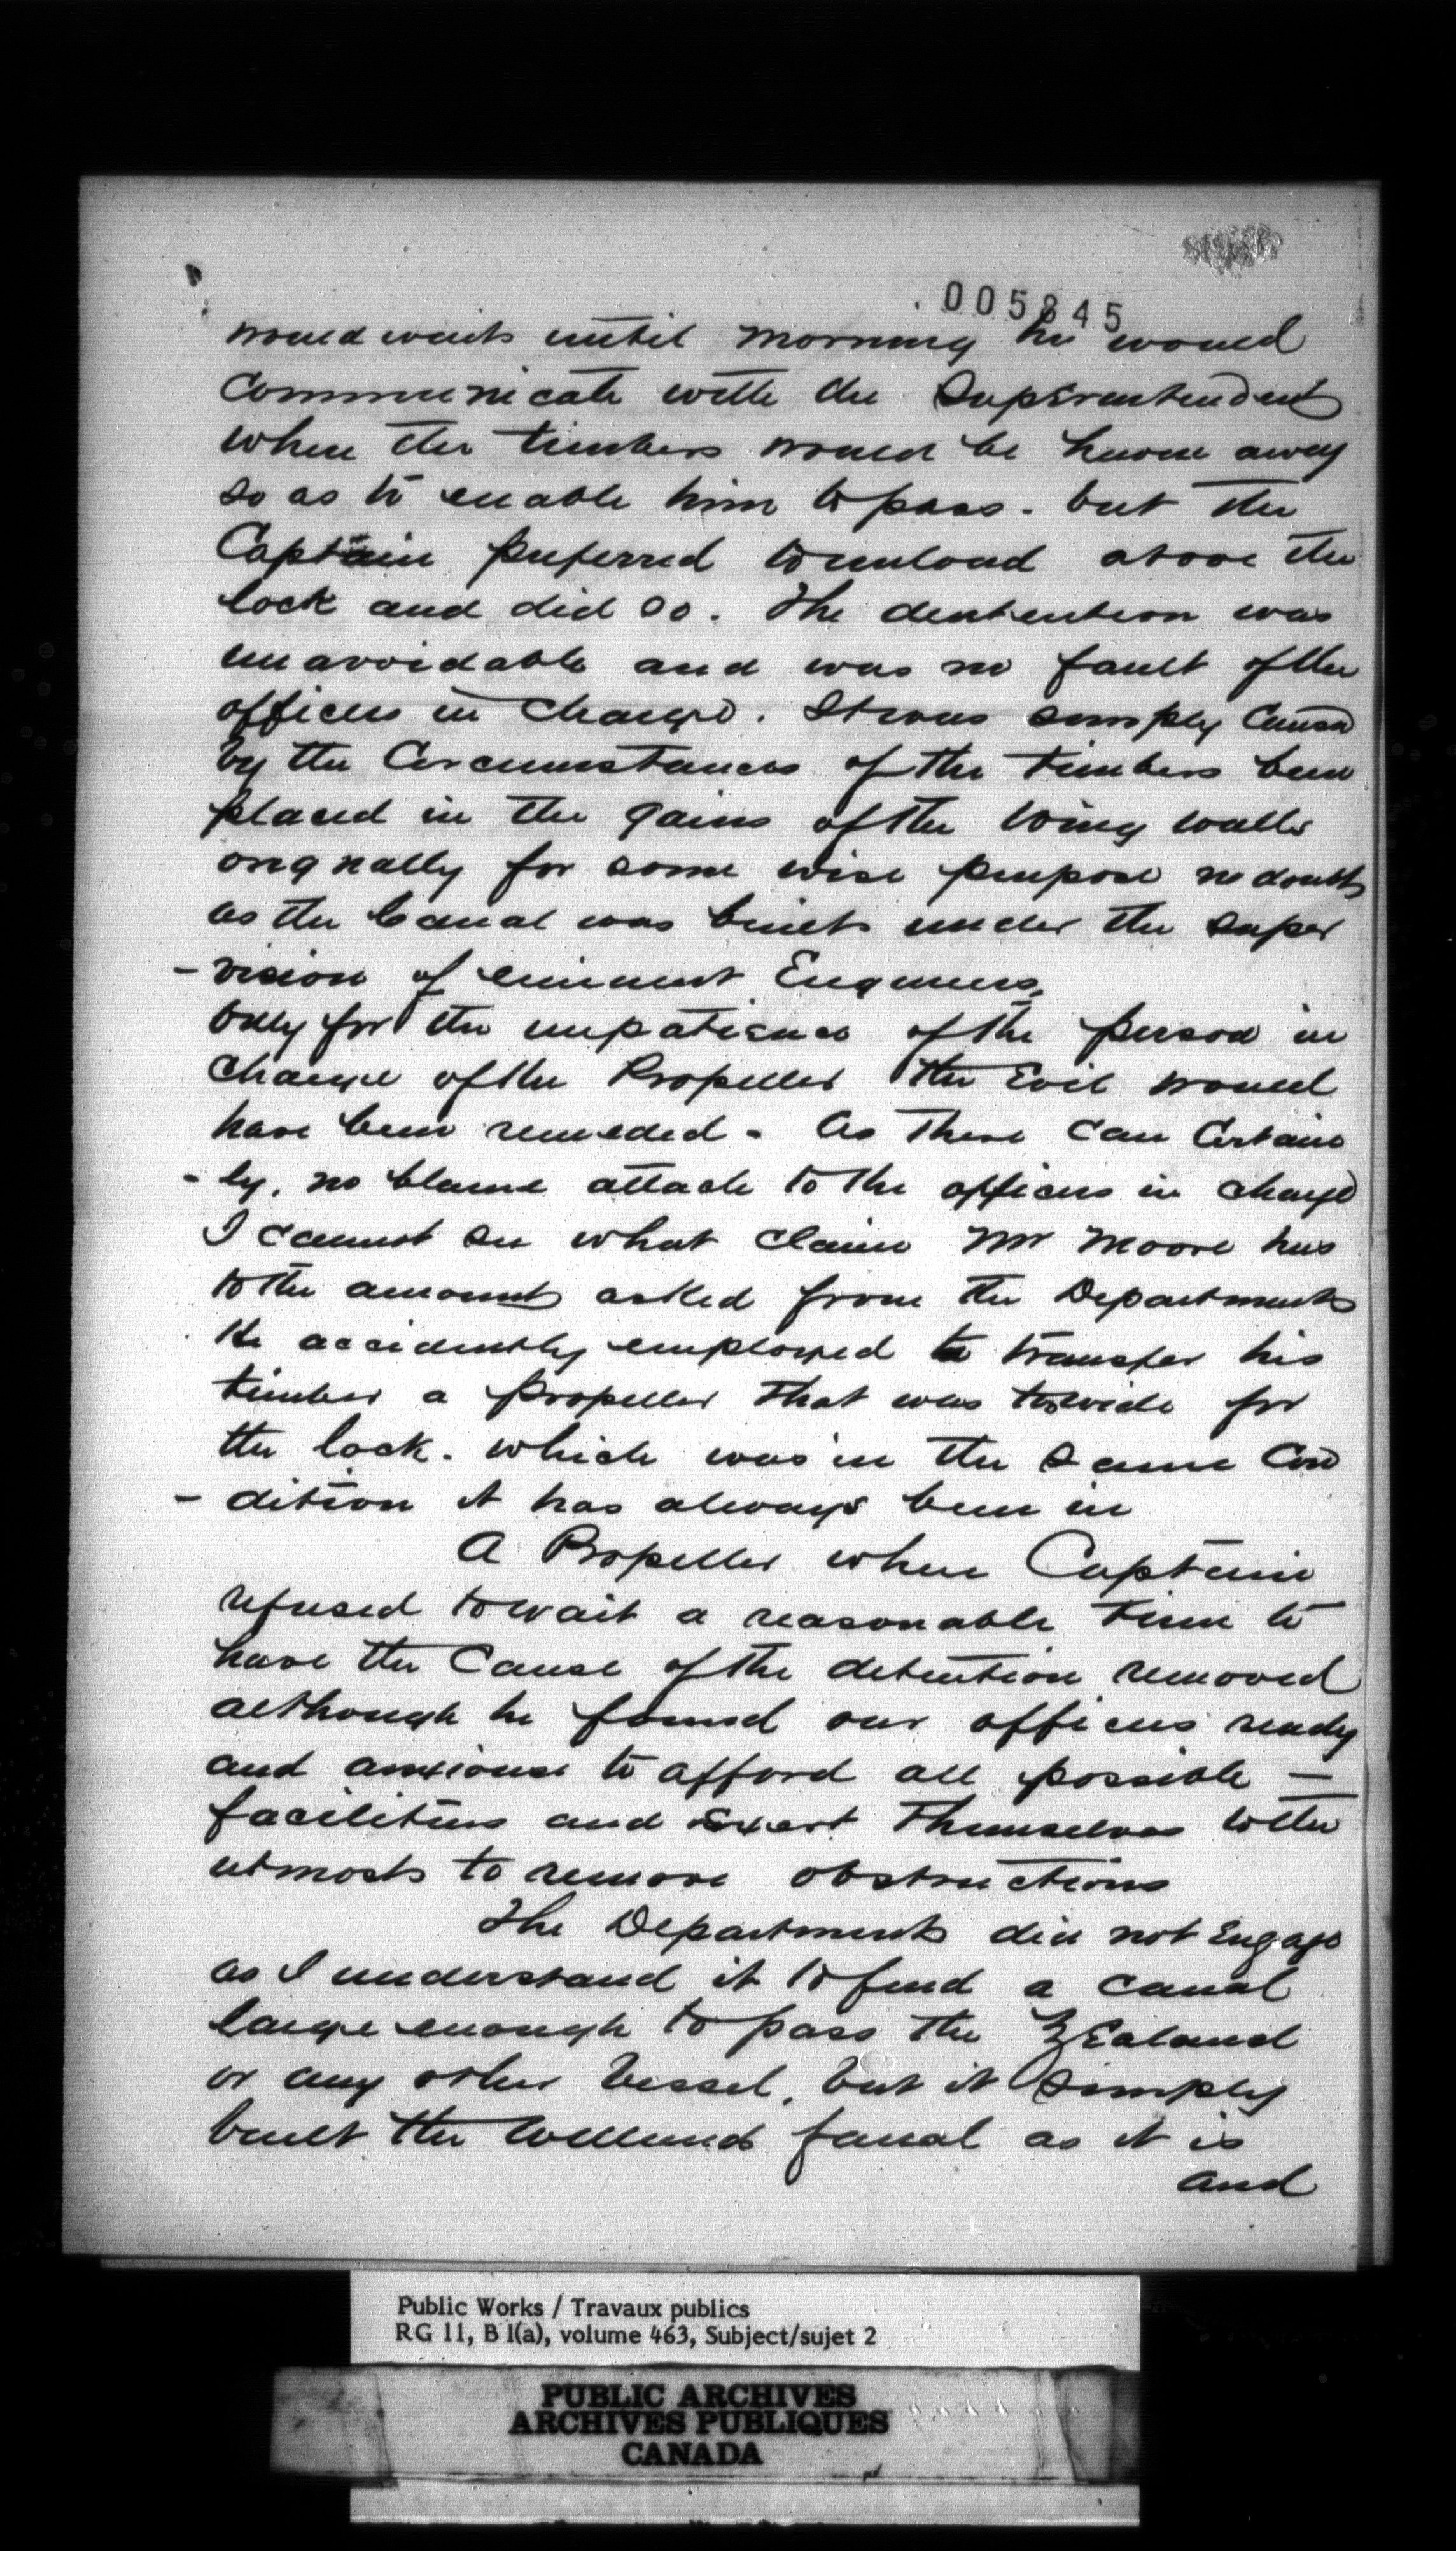 005845
would wait until morning he would
Communicate with the Superintendent
when the timbers would be hewn away
so as to enable him to pass. but the
Captain preferred to unload above the
lock and did so. The dentention was
unavoidable and was no fault of the
officers in charge. It was simply Caused
by the Circumstances of the timbers been
placed in the gains of the wing walls
orignally for some wise purpose no doubt
as the Canal was built under the super
- vision of eminent Engineers,
Only for the impatience of the person in
charge of the Propeller the Evil would
have been remeded - As there can Certain
- ly, no blame attach to the officers in charge
I cannot see what claim Mr Moore has
to the amount asked from the Department
He accidently employed to transfer his
timber a propeller that was too wide for
the lock. which was in the same Con
- dition it has always been in
A Propeller whose Captain
refused to wait a reasonable time to
have the Cause of the detention removed
although he found our officers ready
and anxious to afford all possible —
facilities and exert themselves to the
utmost to remove obstructions
The Department did not Engage
as I understand it to find a canal
large enough to pass the Zealand
or any other Vessel, but it simply
built the Welland Canal as it is
and
Public Works / Travaux publics
RG 11, B 1(a), volume 463, Subject/sujet 2
PUBLIC ARCHIVES
ARCHIVES PUBLIQUES
CANADA